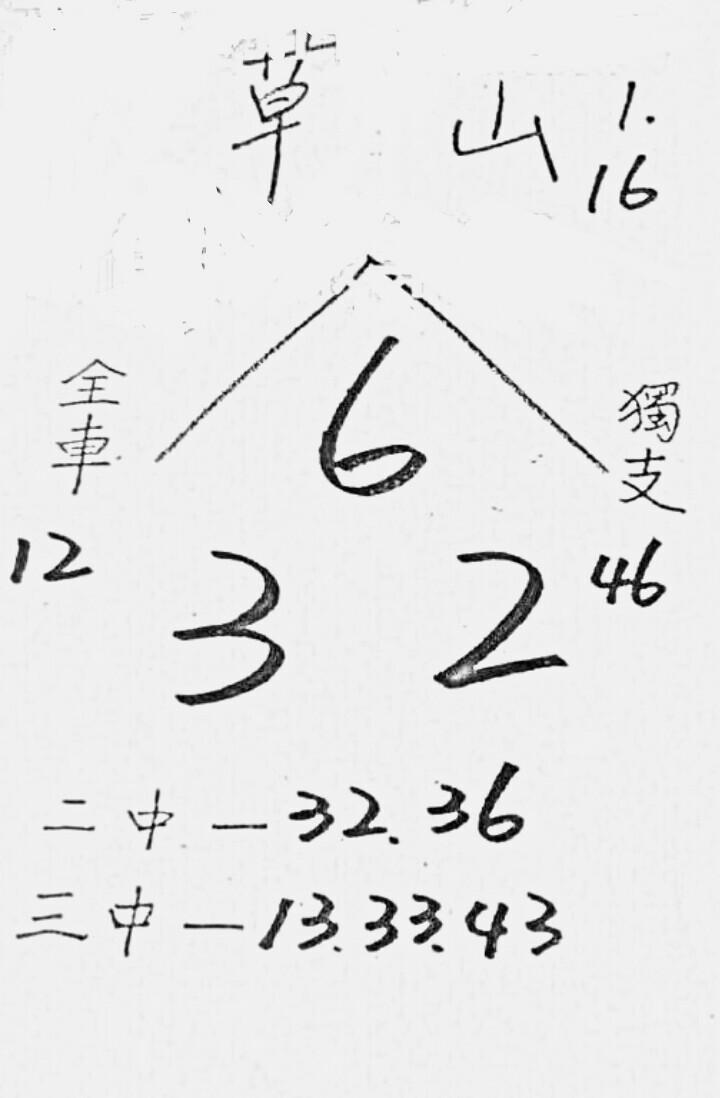 草 山 1.
16
6
全車 獨支
12 46
3 2
二中－32.36
三中－13.33.43